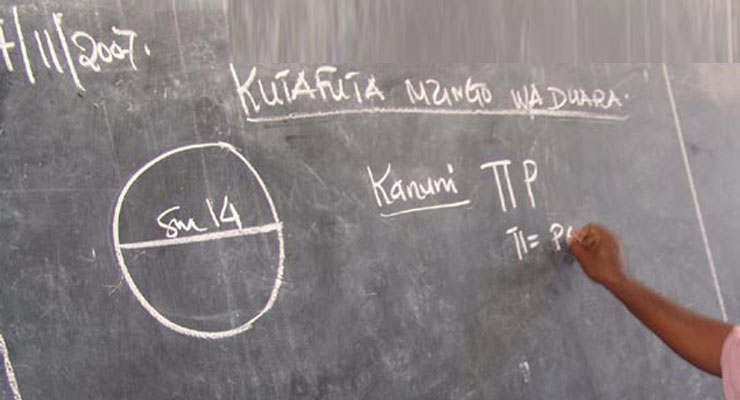 7/11/2007.
KUTAFUTA MZINGO WA DUARA.
Sm 14
Kanuni Π P
Π =